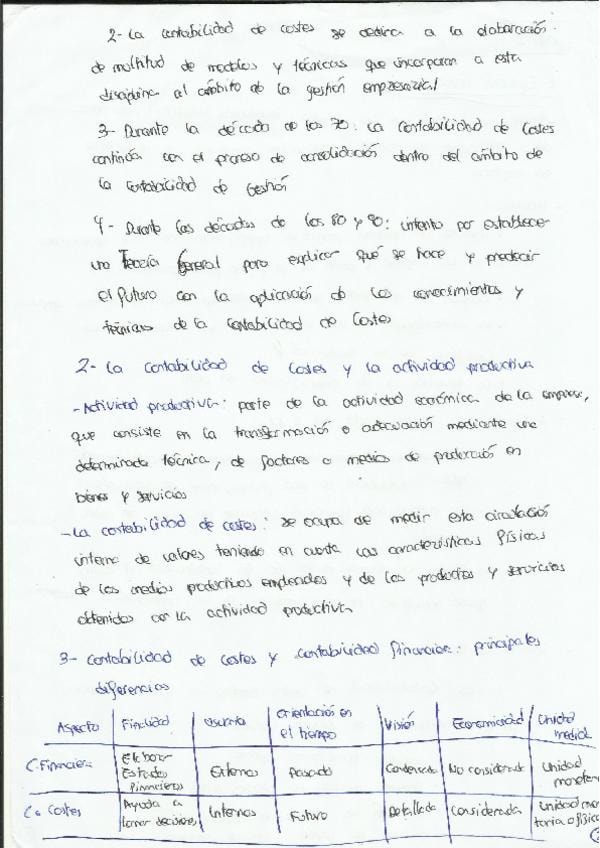 2- La contabilidad de costes se dedica a la elaboración
de multitud de modelos y técnicas que incorporan a esta
disciplina al ámbito de la gestión empresarial
3- Durante la década de los 70: la Contabilidad de Costes
continúa con el proceso de consolidación dentro del ámbito de
la contabilidad de Gestión
4- Durante las décadas de los 80 y 90: intento por establecer
una Teoría General para explicar qué se hace y predecir
el futuro con la aplicación de los conocimientos y
técnicas de la Contabilidad de Costes
2- La contabilidad de costes y la actividad productiva
-Actividad productiva: parte de la actividad económica de la empresa,
que consiste en la transformación o adecuación mediante una
determinada técnica, de factores o medios de producción en
bienes y servicios
-La contabilidad de costes: se ocupa de medir esta circulación
interna de valores teniendo en cuenta las características físicas
de los medios productivos empleados y de los productos y servicios
obtenidos con la actividad productiva
3- contabilidad de costes y contabilidad financiera: principales
diferencias
Aspecto Finalidad Usuario Orientación en el tiempo Visión Economicidad Unidad medida
C. Financiera Elaborar Estados Financieros Externos Pasado Condensada No considerada Unidad moneta
C. Costes Ayuda a tomar decisiones Internos Futuro Detallada Considerada Unidad mone taria o física